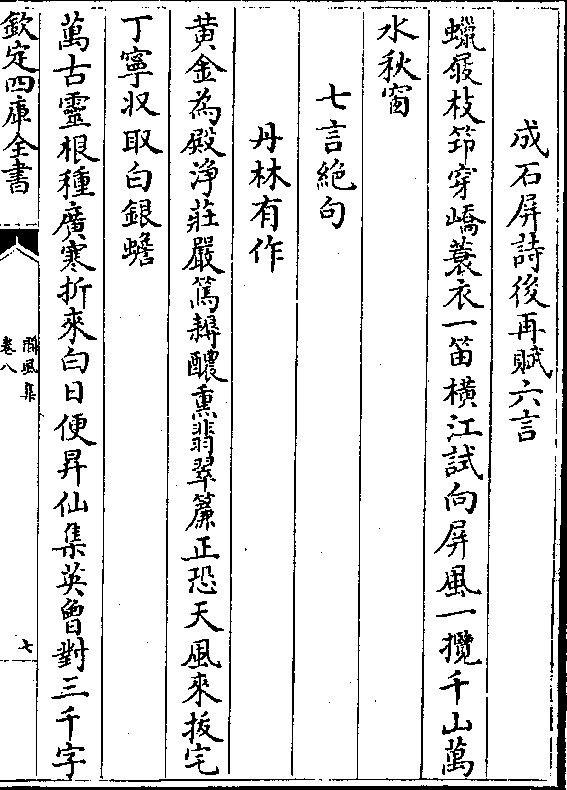 成石屏詩後再賦六言
蠟屐枝笻穿嶠蓑衣一笛橫江試向屏風一攬千山萬
水秋窗
七言絕句
丹林有作
黃金為殿淨莊嚴篤耨醲熏翡翠簾正恐天風來拔宅
丁寧收取白銀蟾
萬古靈根種廣寒折來白日便昇仙集英曾對三千字
欽定四庫全書
閬風集
卷八
七